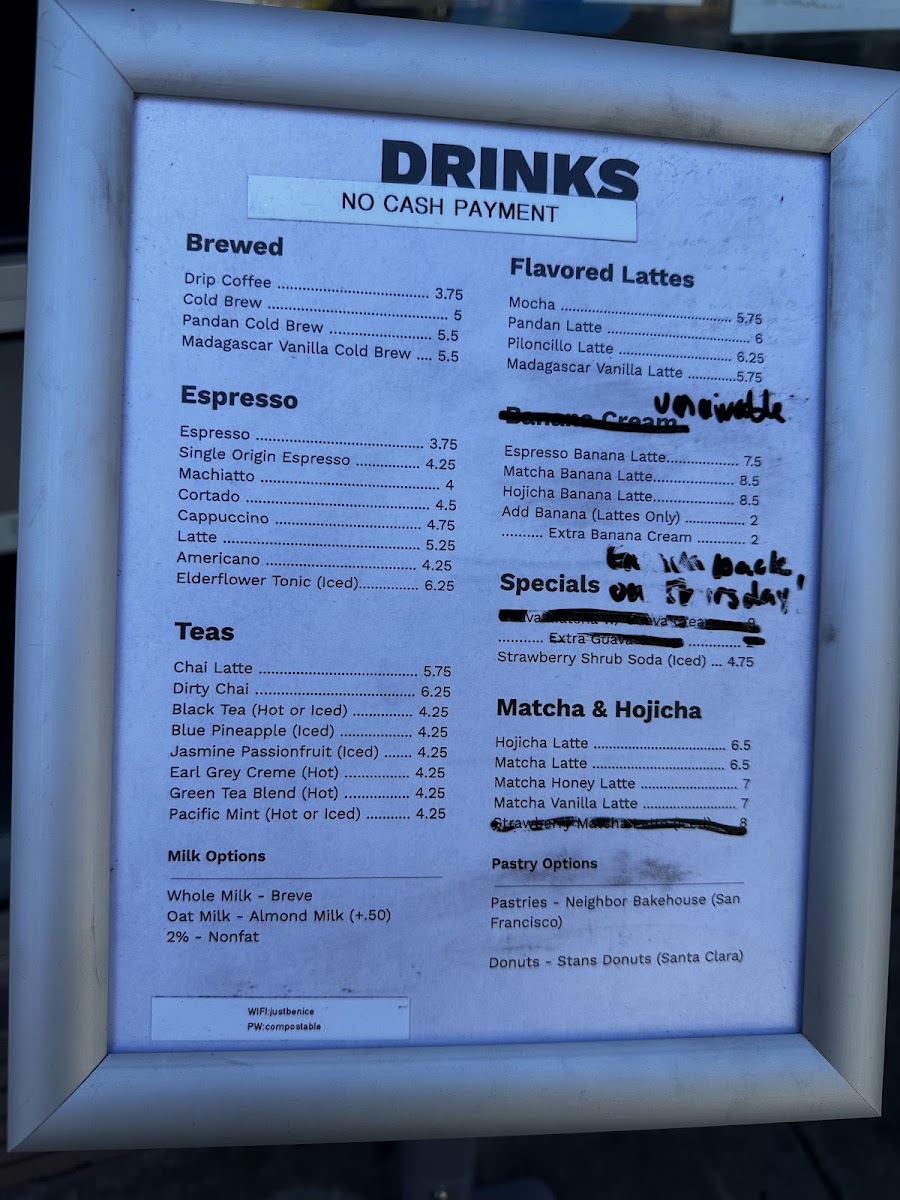 DRINKS
NO CASH PAYMENT
Brewed
Drip Coffee 3.75
Cold Brew 5
Pandan Cold Brew 5.5
Madagascar Vanilla Cold Brew 5.5
Espresso
Espresso 3.75
Single Origin Espresso 4.25
Machiatto 4
Cortado 4.5
Cappuccino 4.75
Latte 5.25
Americano 4.25
Elderflower Tonic (Iced) 6.25
Teas
Chai Latte 5.75
Dirty Chai 6.25
Black Tea (Hot or Iced) 4.25
Blue Pineapple (Iced) 4.25
Jasmine Passionfruit (Iced) 4.25
Earl Grey Creme (Hot) 4.25
Green Tea Blend (Hot) 4.25
Pacific Mint (Hot or Iced) 4.25
Milk Options
Whole Milk - Breve
Oat Milk - Almond Milk (+.50)
2% - Nonfat
WIFI:justbenice
PW:compostable
Flavored Lattes
Mocha 5.75
Pandan Latte 6
Piloncillo Latte 6.25
Madagascar Vanilla Latte 5.75
Banana Cream
Espresso Banana Latte 7.5
Matcha Banana Latte 8.5
Hojicha Banana Latte 8.5
Add Banana (Lattes Only) 2
Extra Banana Cream 2
back
Specials on
Extra Guava
Strawberry Shrub Soda (Iced) 4.75
Matcha & Hojicha
Hojicha Latte 6.5
Matcha Latte 6.5
Matcha Honey Latte 7
Matcha Vanilla Latte 7
Strawberry Matcha 8
Pastry Options
Pastries - Neighbor Bakehouse (San
Francisco)
Donuts - Stans Donuts (Santa Clara)